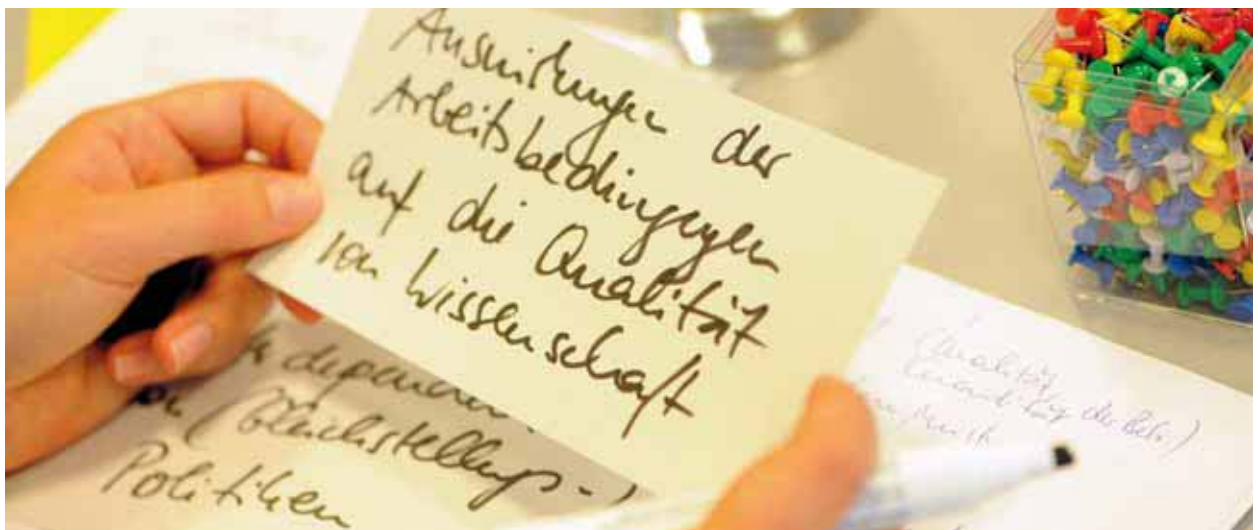 Auswirkungen der
Arbeitsbedingungen
auf die Qualität
von Wissenschaft
(Gleichstellungs-)
Politiken
(Qualität
der Betr.)